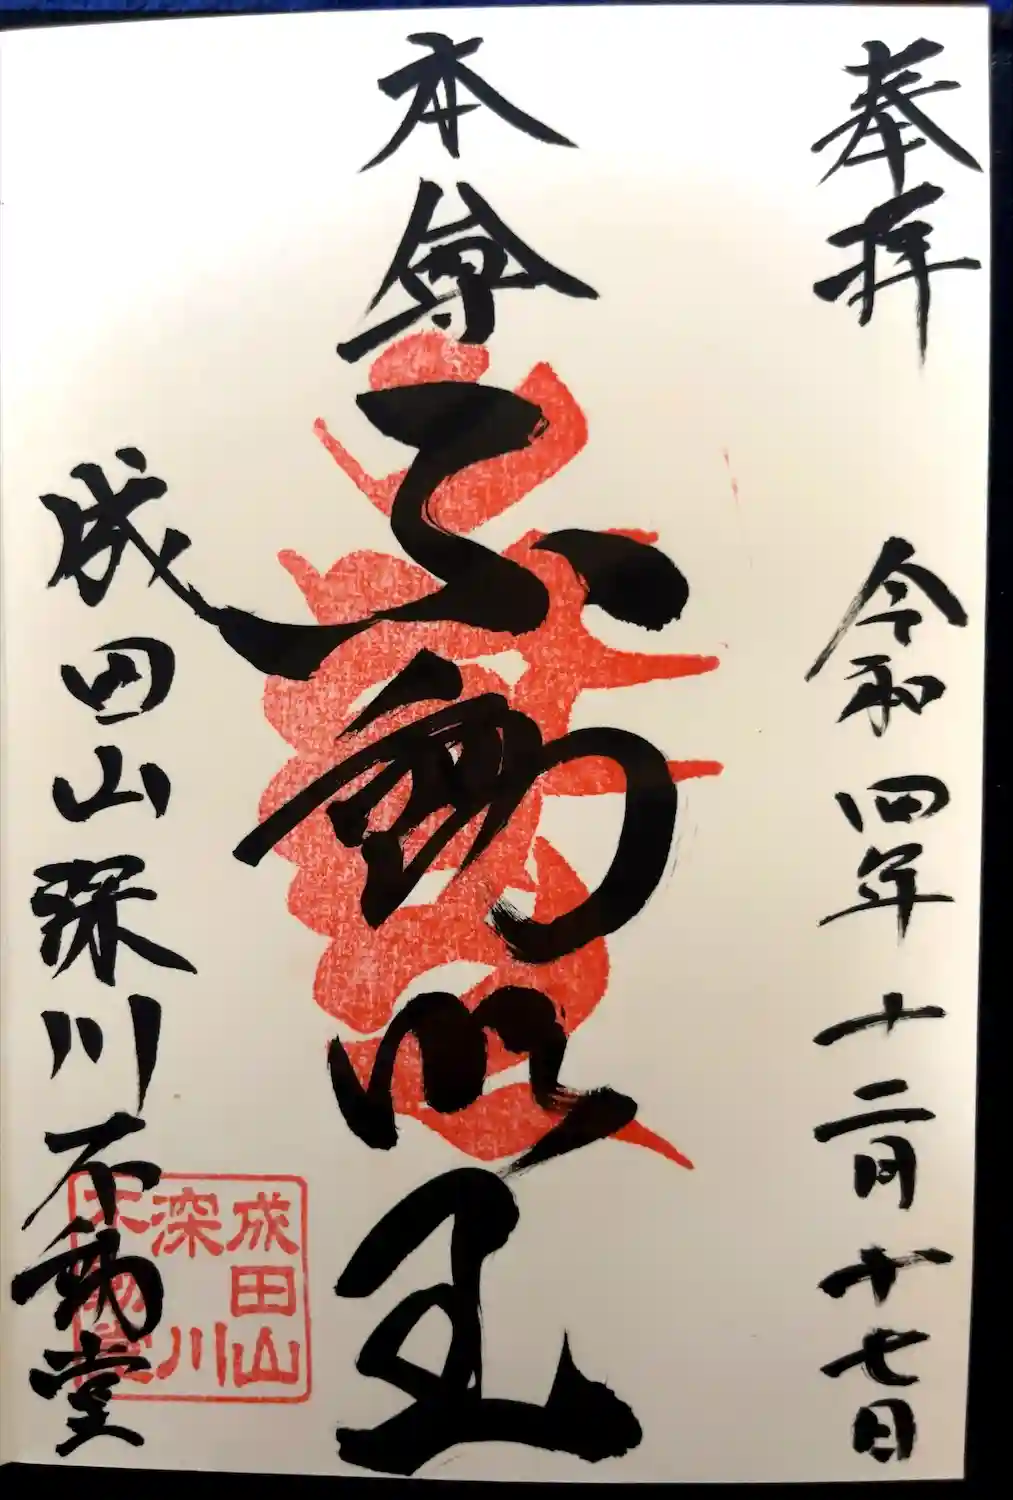 奉拝 令和四年十二月十七日
本尊 不動明王
成田山深川不動堂
成田山
深川
不動堂